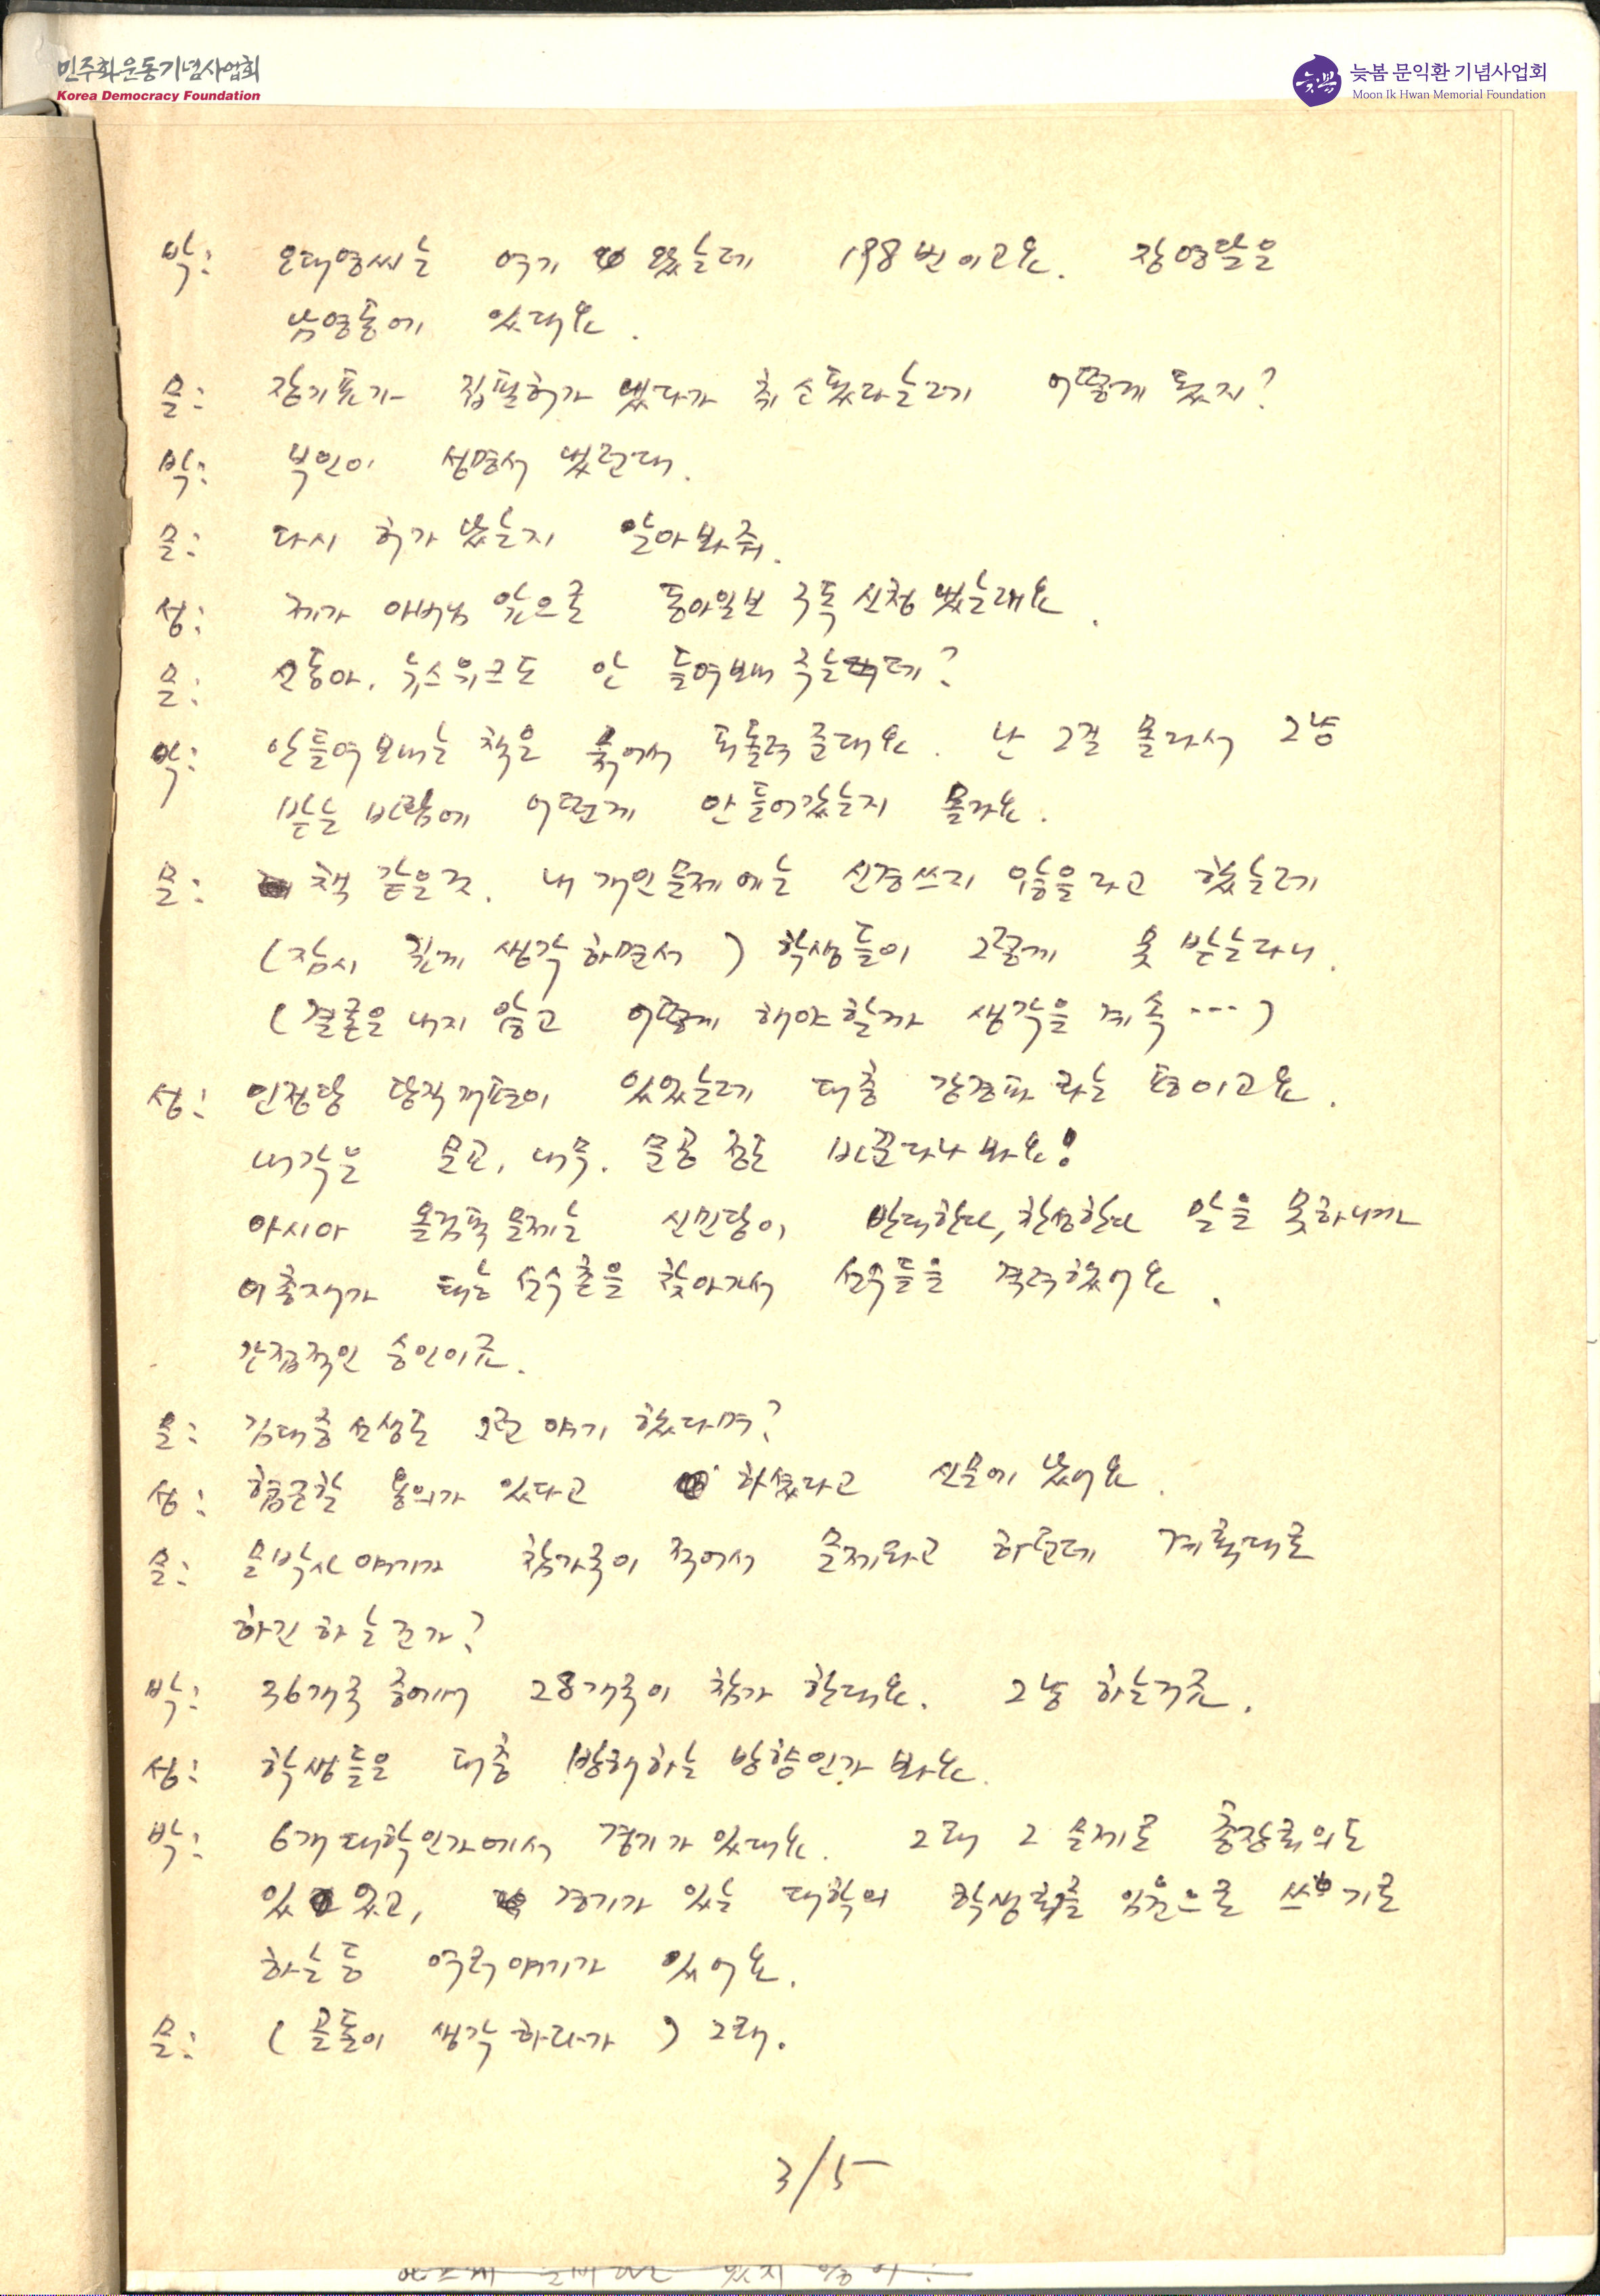 민주화운동기념사업회
Korea Democracy Foundation
늦봄 문익환 기념사업회
Moon Ik Hwan Memorial Foundation
박: 오대영씨는 여기 있는데 198번이고요. 장영달은
남영동에 있대요.
문: 장기표가 집필허가 났다가 취소됐다는데 어떻게 됐지?
박: 부인이 성명서 냈던데.
문: 다시 허가 났는지 알아봐줘.
성: 제가 아버님 앞으로 동아일보 구독 신청 했는데요.
문: 신동아, 뉴스위크도 안 들여보내 주는데?
박: 안 들여보내는 책은 묶어서 되돌려 준대요. 난 그걸 몰라서 그냥
받는 바람에 어떤게 안 들어갔는지 몰라요.
문: 책 같은것. 내 개인문제에는 신경쓰지 않을라고 했는데
(잠시 깊게 생각하면서) 학생들이 그렇게 못 받는다니.
(결론은 내지 않고 어떻게 해야할까 생각을 계속 ...)
성: 민정당 당직개편이 있었는데 대충 강경파라는 평이고요.
내각은 문교, 내무, 문공 정도 바꾼다나 봐요!
아시아 올림픽 문제는 신민당이 반대한다, 찬성한다 말을 못하니까
이총재가 태능선수촌을 찾아가서 선수들을 격려했어요.
간접적인 승인이죠.
문: 김대중선생도 그런 얘기 했다며?
성: 협조할 용의가 있다고 하셨다고 신문에 났어요.
문: 문박사 얘기가 참가국이 적어서 문제라고 하던데 계획대로
하긴 하는건가?
박: 36개국 중에서 28개국이 참가 한대요. 그냥 하는거죠.
성: 학생들은 대충 방해하는 방향인가 봐요.
박: 6개 대학인가에서 경기가 있대요. 그래 그 문제로 총장회의도
있었고, 경기가 있는 대학의 학생회를 임원으로 쓰기로
하는 등 여러 얘기가 있어요.
문: (골똘히 생각하다가) 그래.
3/5